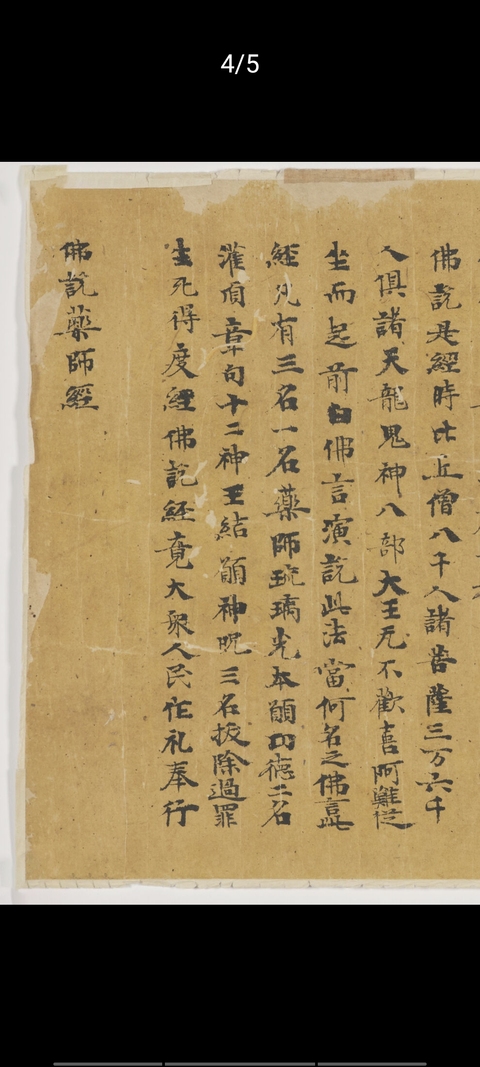 4/5
佛說是經時比丘僧八千人諸菩薩三万六千
人俱諸天龍鬼神八部大王无不歡喜阿難從
坐而起前白佛言演說此法當何名之佛言此
經凡有三名一名藥師琉璃光本願功德二名
灌頂章句十二神王結願神呪三名拔除過罪
生死得度經佛說經竟大衆人民作礼奉行
佛說藥師經